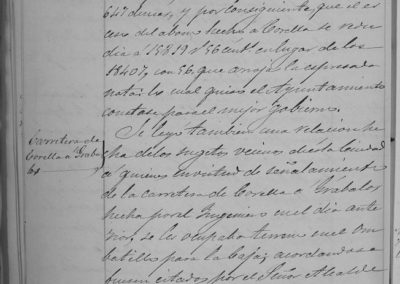 647 duros, y por consiguiente que el es
ceso del abono hecho á Corella se redu
cia á 15813 y 56 cent. en lugar de los
18407, con 56, que arroja la espresada
nota; lo cual quiso el Ayuntamiento
constase para el mejor gobierno.
Carretera de
Corella á Graba
los
Se leyó tambien una relacion he
cha de los sugetos vecinos de esta Ciudad
á quienes en virtud de señalamiento
de la carretera de Corella á Grabalos
hecha por el Ingeniero en el dia ante
rior, se les ocupaba terreno en el Om
batillo para la Caja; acordandose
fuesen citados por el Señor Alcalde